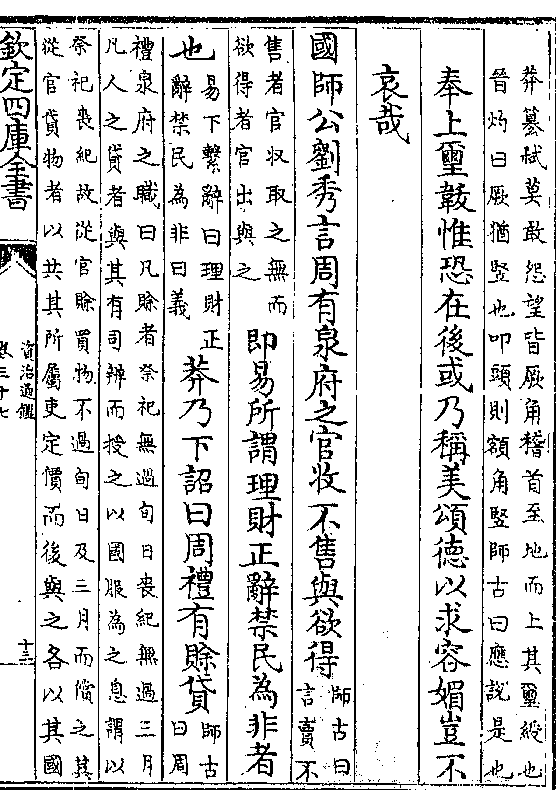 莽篡弑莫敢怨望皆厥角稽首至地而上其璽紱也
晉灼曰厥猶竪也叩頭則額角竪師古曰應說是也
奉上璽韍惟恐在後或乃稱美頌德以求容媚豈不
哀哉
國師公劉秀言周有泉府之官收不售與欲得
師古曰
言賣不
售者官收取之無而
欲得者官出與之
即易所謂理財正辭禁民為非者
也
易下繫辭曰理財正
辭禁民為非曰義
莽乃下詔曰周禮有賒貸
師古
曰周
禮泉府之職曰凡賒者祭祀無過旬日喪紀無過三月
凡人之貸者與其有司辨而授之以國服為之息謂以
祭祀喪紀故從官賒買物不過旬日及三月而償之其
從官貸物者以共其所屬吏定價而後與之各以其國
欽定四庫全書
資治通鑑
卷三十七
十三